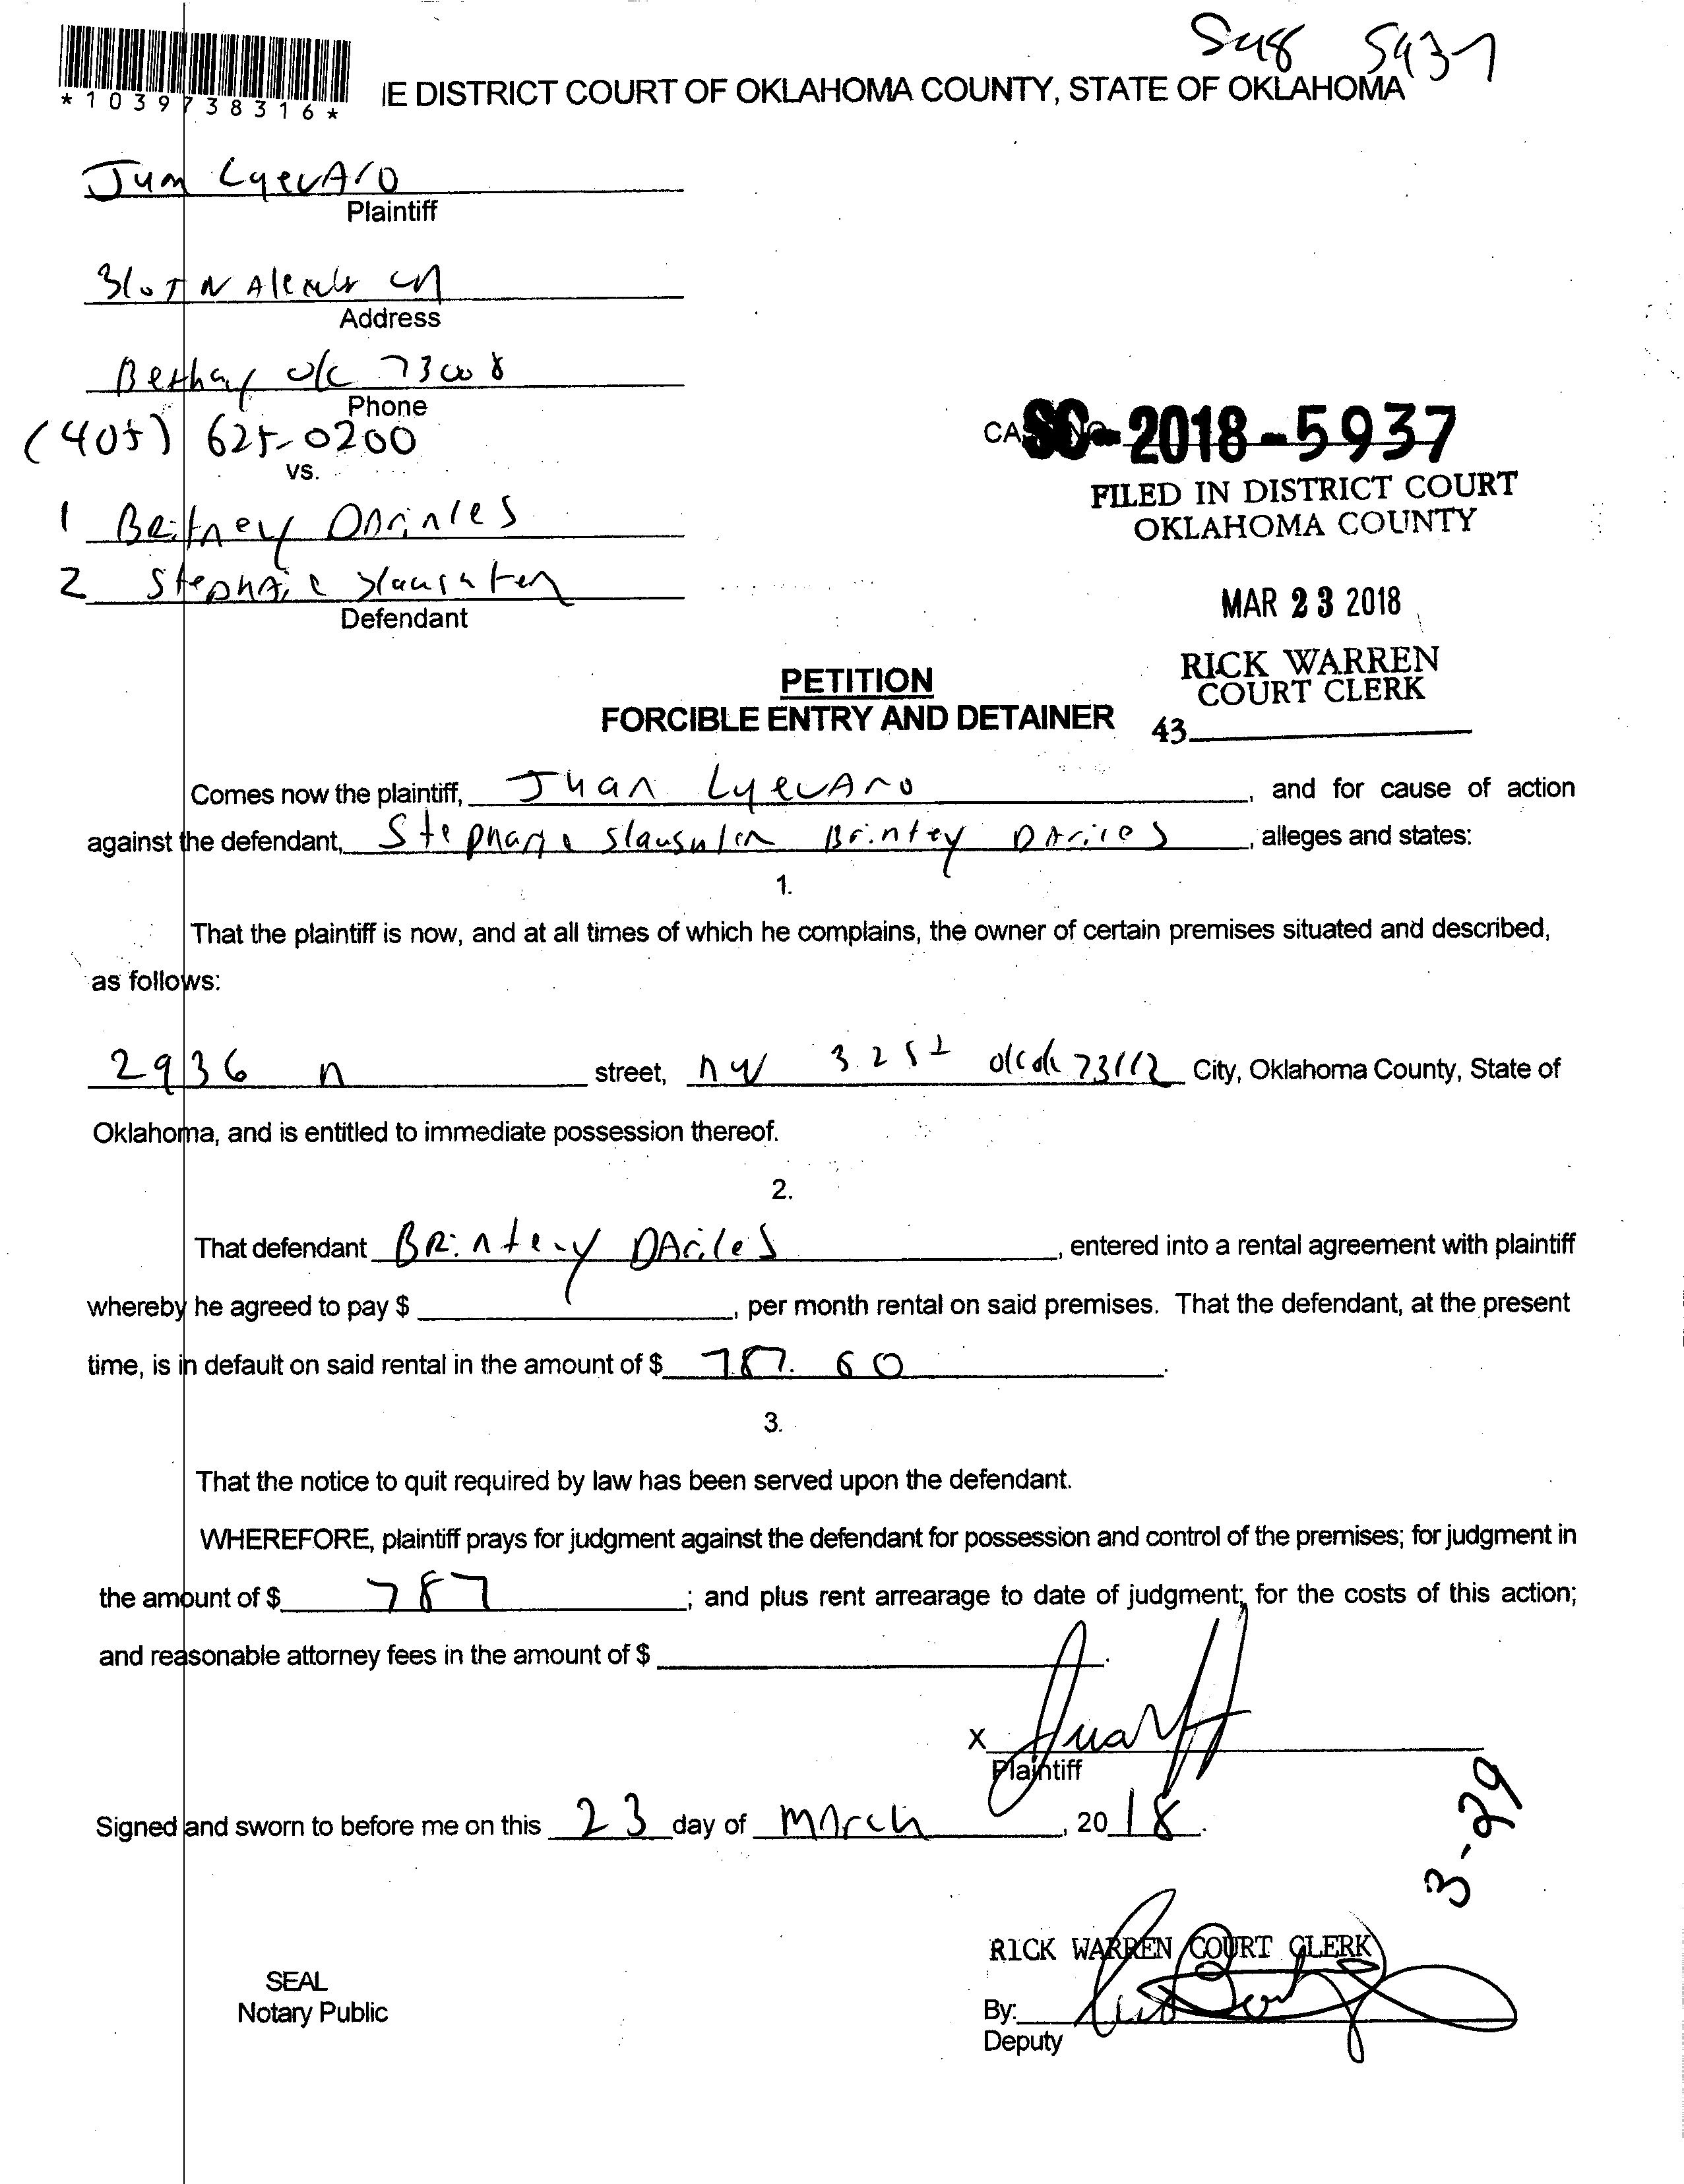 5937
*1039738316*
IE DISTRICT COURT OF OKLAHOMA COUNTY, STATE OF OKLAHOMA
Plaintiff
N
Address
Bethany 73008
Phone
(405) 625-0200
vs.
SC-2018-5937
FILED IN DISTRICT COURT
OKLAHOMA COUNTY
1 Britney
2
Defendant
MAR 23 2018
RICK WARREN
COURT CLERK
43
PETITION
FORCIBLE ENTRY AND DETAINER
Comes now the plaintiff, Juan LyevAro, and for cause of action
against the defendant, Brintey, alleges and states:
1.
That the plaintiff is now, and at all times of which he complains, the owner of certain premises situated and described,
as follows:
2936 n street, nw 73112 City, Oklahoma County, State of
Oklahoma, and is entitled to immediate possession thereof.
2.
That defendant, entered into a rental agreement with plaintiff
whereby he agreed to pay $, per month rental on said premises. That the defendant, at the present
time, is in default on said rental in the amount of $ 787.60.
3.
That the notice to quit required by law has been served upon the defendant.
WHEREFORE, plaintiff prays for judgment against the defendant for possession and control of the premises; for judgment in
the amount of $ 787; and plus rent arrearage to date of judgment; for the costs of this action;
and reasonable attorney fees in the amount of $.
X
Plaintiff
Signed and sworn to before me on this 23 day of March, 2018.
3-29
RICK WARREN COURT CLERK
SEAL
Notary Public
By:
Deputy